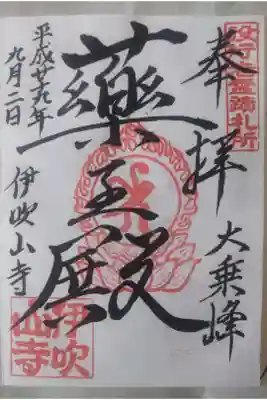 役行者霊蹟札所
奉拝
大乗峰
藥王殿
平成廿九年
九月二日
伊吹山寺
伊吹
山寺